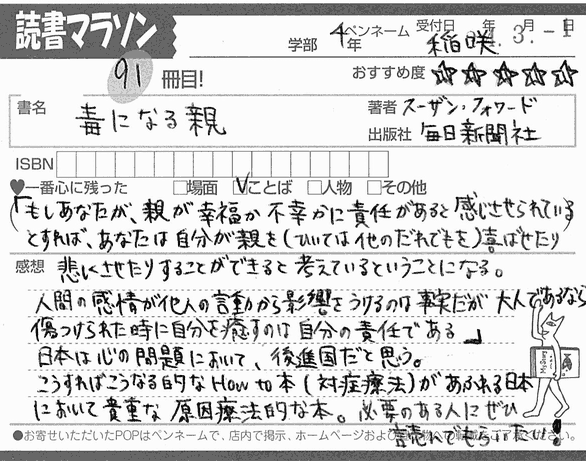 読書マラソン
学部 4年 ペンネーム 稲咲 受付日 年 3月 -1日
91 冊目!
おすすめ度 ☆☆☆☆☆
書名 毒になる親
著者 スーザン・フォワード
出版社 毎日新聞社
ISBN
♥一番心に残った □場面 ☑ことば □人物 □その他
「もしあなたが、親が幸福か不幸かに責任があると感じさせられている
とすれば、あなたは自分が親を(ひいては他のだれでもを)喜ばせたり
感想 悲しくさせたりすることができると考えているということになる。
人間の感情が他人の言動から影響をうけるのは事実だが大人であるなら
傷つけられた時に自分を癒すのは自分の責任である」
日本は心の問題において、後進国だと思う。
こうすればこうなる的なHow to本(対症療法)があふれる日本
において貴重な原因療法的な本。必要のある人にぜひ
読んでもらいたい!
●お寄せいただいたPOPはペンネームで、店内で掲示、ホームページおよび
ご了承ください。